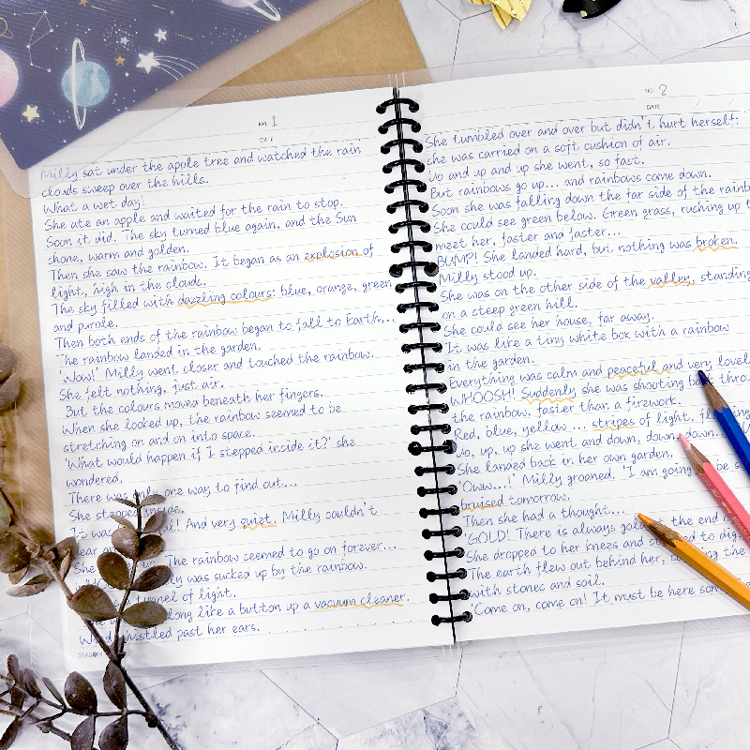 NO. 1
DATE
Milly sat under the apple tree and watched the rain
clouds sweep over the hills.
What a wet day!
She ate an apple and waited for the rain to stop.
Soon it did. The sky turned blue again, and the Sun
shone, warm and golden.
Then she saw the rainbow. It began as an explosion of
light, high in the clouds.
The sky filled with dazzling colours: blue, orange, green
and purple.
Then both ends of the rainbow began to fall to Earth...
The rainbow landed in the garden.
'Wow!' Milly went closer and touched the rainbow.
She felt nothing, just air.
But the colours moved beneath her fingers.
When she looked up, the rainbow seemed to be
stretching on and on into space.
'What would happen if I stepped inside it?' she
wondered.
There was only one way to find out...
She stepped inside.
It was And very quiet. Milly couldn't
up. The rainbow seemed to go on forever...
was sucked up by the rainbow.
tunnel of light.
long like a button up a vacuum cleaner.
whistled past her ears.
SEASON
NO. 2
DATE
She tumbled over and over but didn't hurt herself:
she was carried on a soft cushion of air.
Up and up and up she went, so fast.
But rainbows go up... and rainbows come down.
Soon she was falling down the far side of the
She could see green below. Green grass, rushing up
meet her, faster and faster...
BUMP! She landed hard, but nothing was broken.
Milly stood up.
She was on the other side of the valley, standing
on a steep green hill.
She could see her house, far away.
It was like a tiny white box with a rainbow
in the garden.
Everything was calm and peaceful and very
WHOOSH! Suddenly she was shooting
the rainbow, faster than a firework.
Red, blue, yellow ... stripes of light,
Up, up, up she went and down, down, down...
She landed back in her own garden.
'Oww...!' Milly groaned. 'I am going be
bruised tomorrow.
Then she had a thought...
'GOLD! There is always the end
She dropped to her knees and to
The earth flew out behind her, the
with stones and soil.
'Come on, come on! It must be here